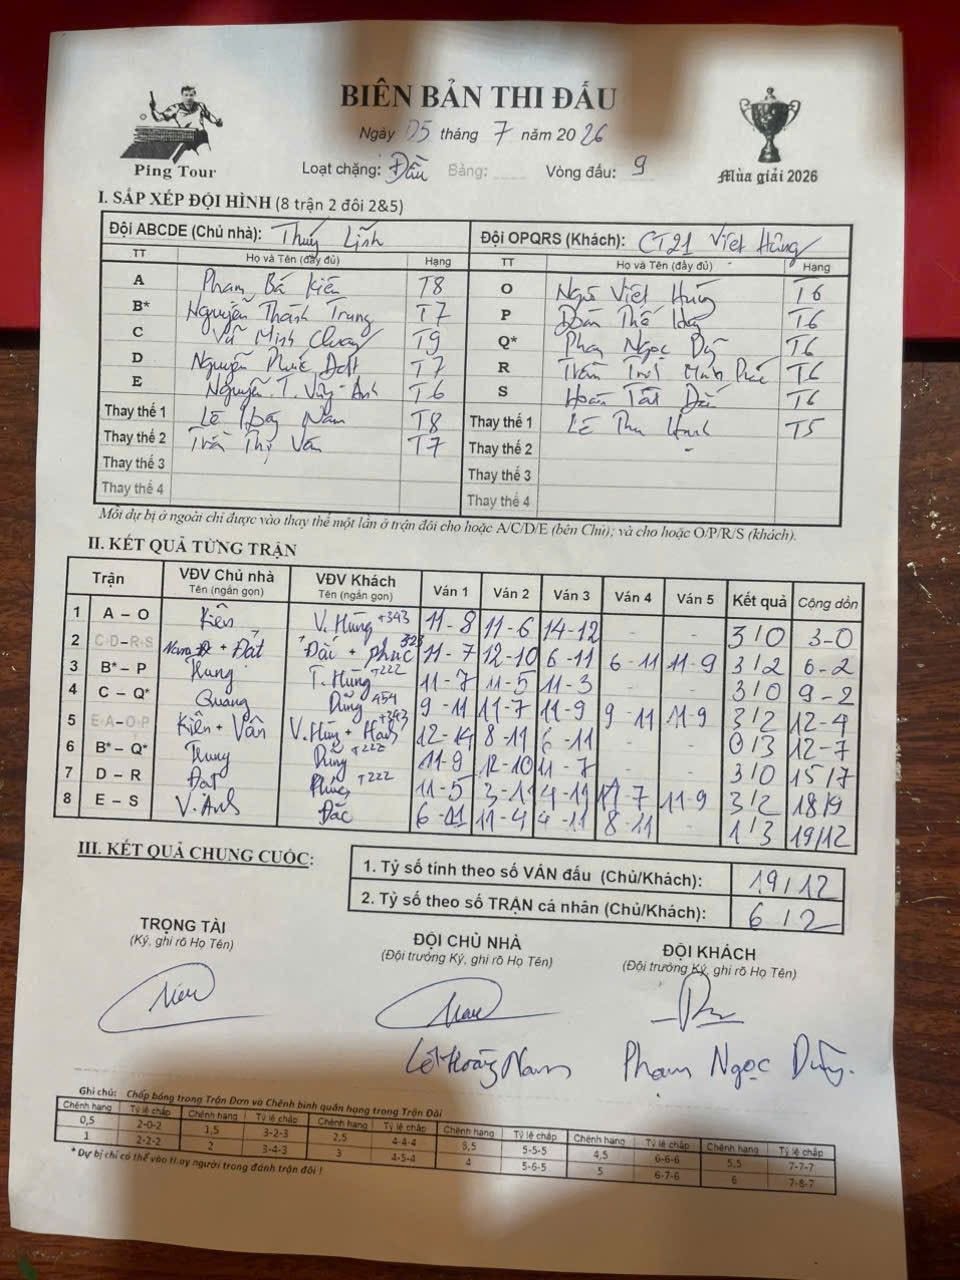 BIÊN BẢN THI ĐẤU
Ngày 05 tháng 7 năm 2026
Ping Tour
Loạt chặng: Đầu Bảng: Vòng đấu: 9
Mùa giải 2026
I. SẮP XẾP ĐỘI HÌNH (8 trận 2 đôi 2&5)
Đội ABCDE (Chủ nhà): Thúy Lĩnh Đội OPQRS (Khách): CT21 Việt Hùng
TT Họ và Tên (đầy đủ) Hạng TT Họ và Tên (đầy đủ) Hạng
A Phạm Bá Kiên T8 O Ngô Việt Hùng T6
B* Nguyễn Thành Trung T7 P Đoàn Thế T6
C Vũ Minh T9 Q* Phạm Ngọc T6
D Nguyễn Phúc Đạt T7 R Trần T6
E Nguyễn T. V. Anh T6 S Hoàn Tất T6
Thay thế 1 Lê Hoàng Nam T8 Thay thế 1 Lê Thu Hạnh T5
Thay thế 2 Trần Thị Vân T7 Thay thế 2
Thay thế 3 Thay thế 3
Thay thế 4 Thay thế 4
Mỗi dự bị ở ngoài chỉ được vào thay thế một lần ở trận đôi cho hoặc A/C/D/E (bên Chủ); và cho hoặc O/P/R/S (khách).
II. KẾT QUẢ TỪNG TRẬN
Trận VĐV Chủ nhà Tên (ngắn gọn) VĐV Khách Tên (ngắn gọn) Ván 1 Ván 2 Ván 3 Ván 4 Ván 5 Kết quả Cộng dồn
1 A – O Kiên V. Hùng +343 11-8 11-6 14-12 - - 3/0 3-0
2 C-D–R-S Nam + Đạt Đài + Phúc 323 11-7 12-10 6-11 6-11 11-9 3/2 6-2
3 B* – P Trung T. Hùng +222 11-7 11-5 11-3 - - 3/0 9-2
4 C – Q* Quang Dũng 454 9-11 11-7 11-9 9-11 11-9 3/2 12-4
5 E-A–O-P Kiên + Vân V. Hùng + Hạnh +343 12-14 8-11 6-11 - - 0/3 12-7
6 B* – Q* Trung Dũng +222 11-9 12-10 11-7 - - 3/0 15/7
7 D – R Đạt Phúc +222 11-5 3-11 4-11 11-7 11-9 3/2 18/9
8 E – S V. Anh Đắc 6-11 11-4 4-11 8-11 - 1/3 19/12
III. KẾT QUẢ CHUNG CUỘC:
1. Tỷ số tính theo số VÁN đấu (Chủ/Khách): 19/12
2. Tỷ số theo số TRẬN cá nhân (Chủ/Khách): 6/2
TRỌNG TÀI ĐỘI CHỦ NHÀ ĐỘI KHÁCH
(Ký, ghi rõ Họ Tên) (Đội trưởng Ký, ghi rõ Họ Tên) (Đội trưởng Ký, ghi rõ Họ Tên)
Lê Hoàng Nam Phạm Ngọc Dũng.
Ghi chú: Chấp bóng trong Trận Đơn và Chênh bình quân hạng trong Trận Đôi
Chênh hạng Tỷ lệ chấp Chênh hạng Tỷ lệ chấp Chênh hạng Tỷ lệ chấp Chênh hạng Tỷ lệ chấp Chênh hạng Tỷ lệ chấp Chênh hạng Tỷ lệ chấp
0,5 2-0-2 1,5 3-2-3 2,5 4-4-4 3,5 5-5-5 4,5 6-6-6 5,5 7-7-7
1 2-2-2 2 3-4-3 3 4-5-4 4 5-6-5 5 6-7-6 6 7-8-7
* Dự bị chỉ có thể vào thay người trong đánh trận đôi !